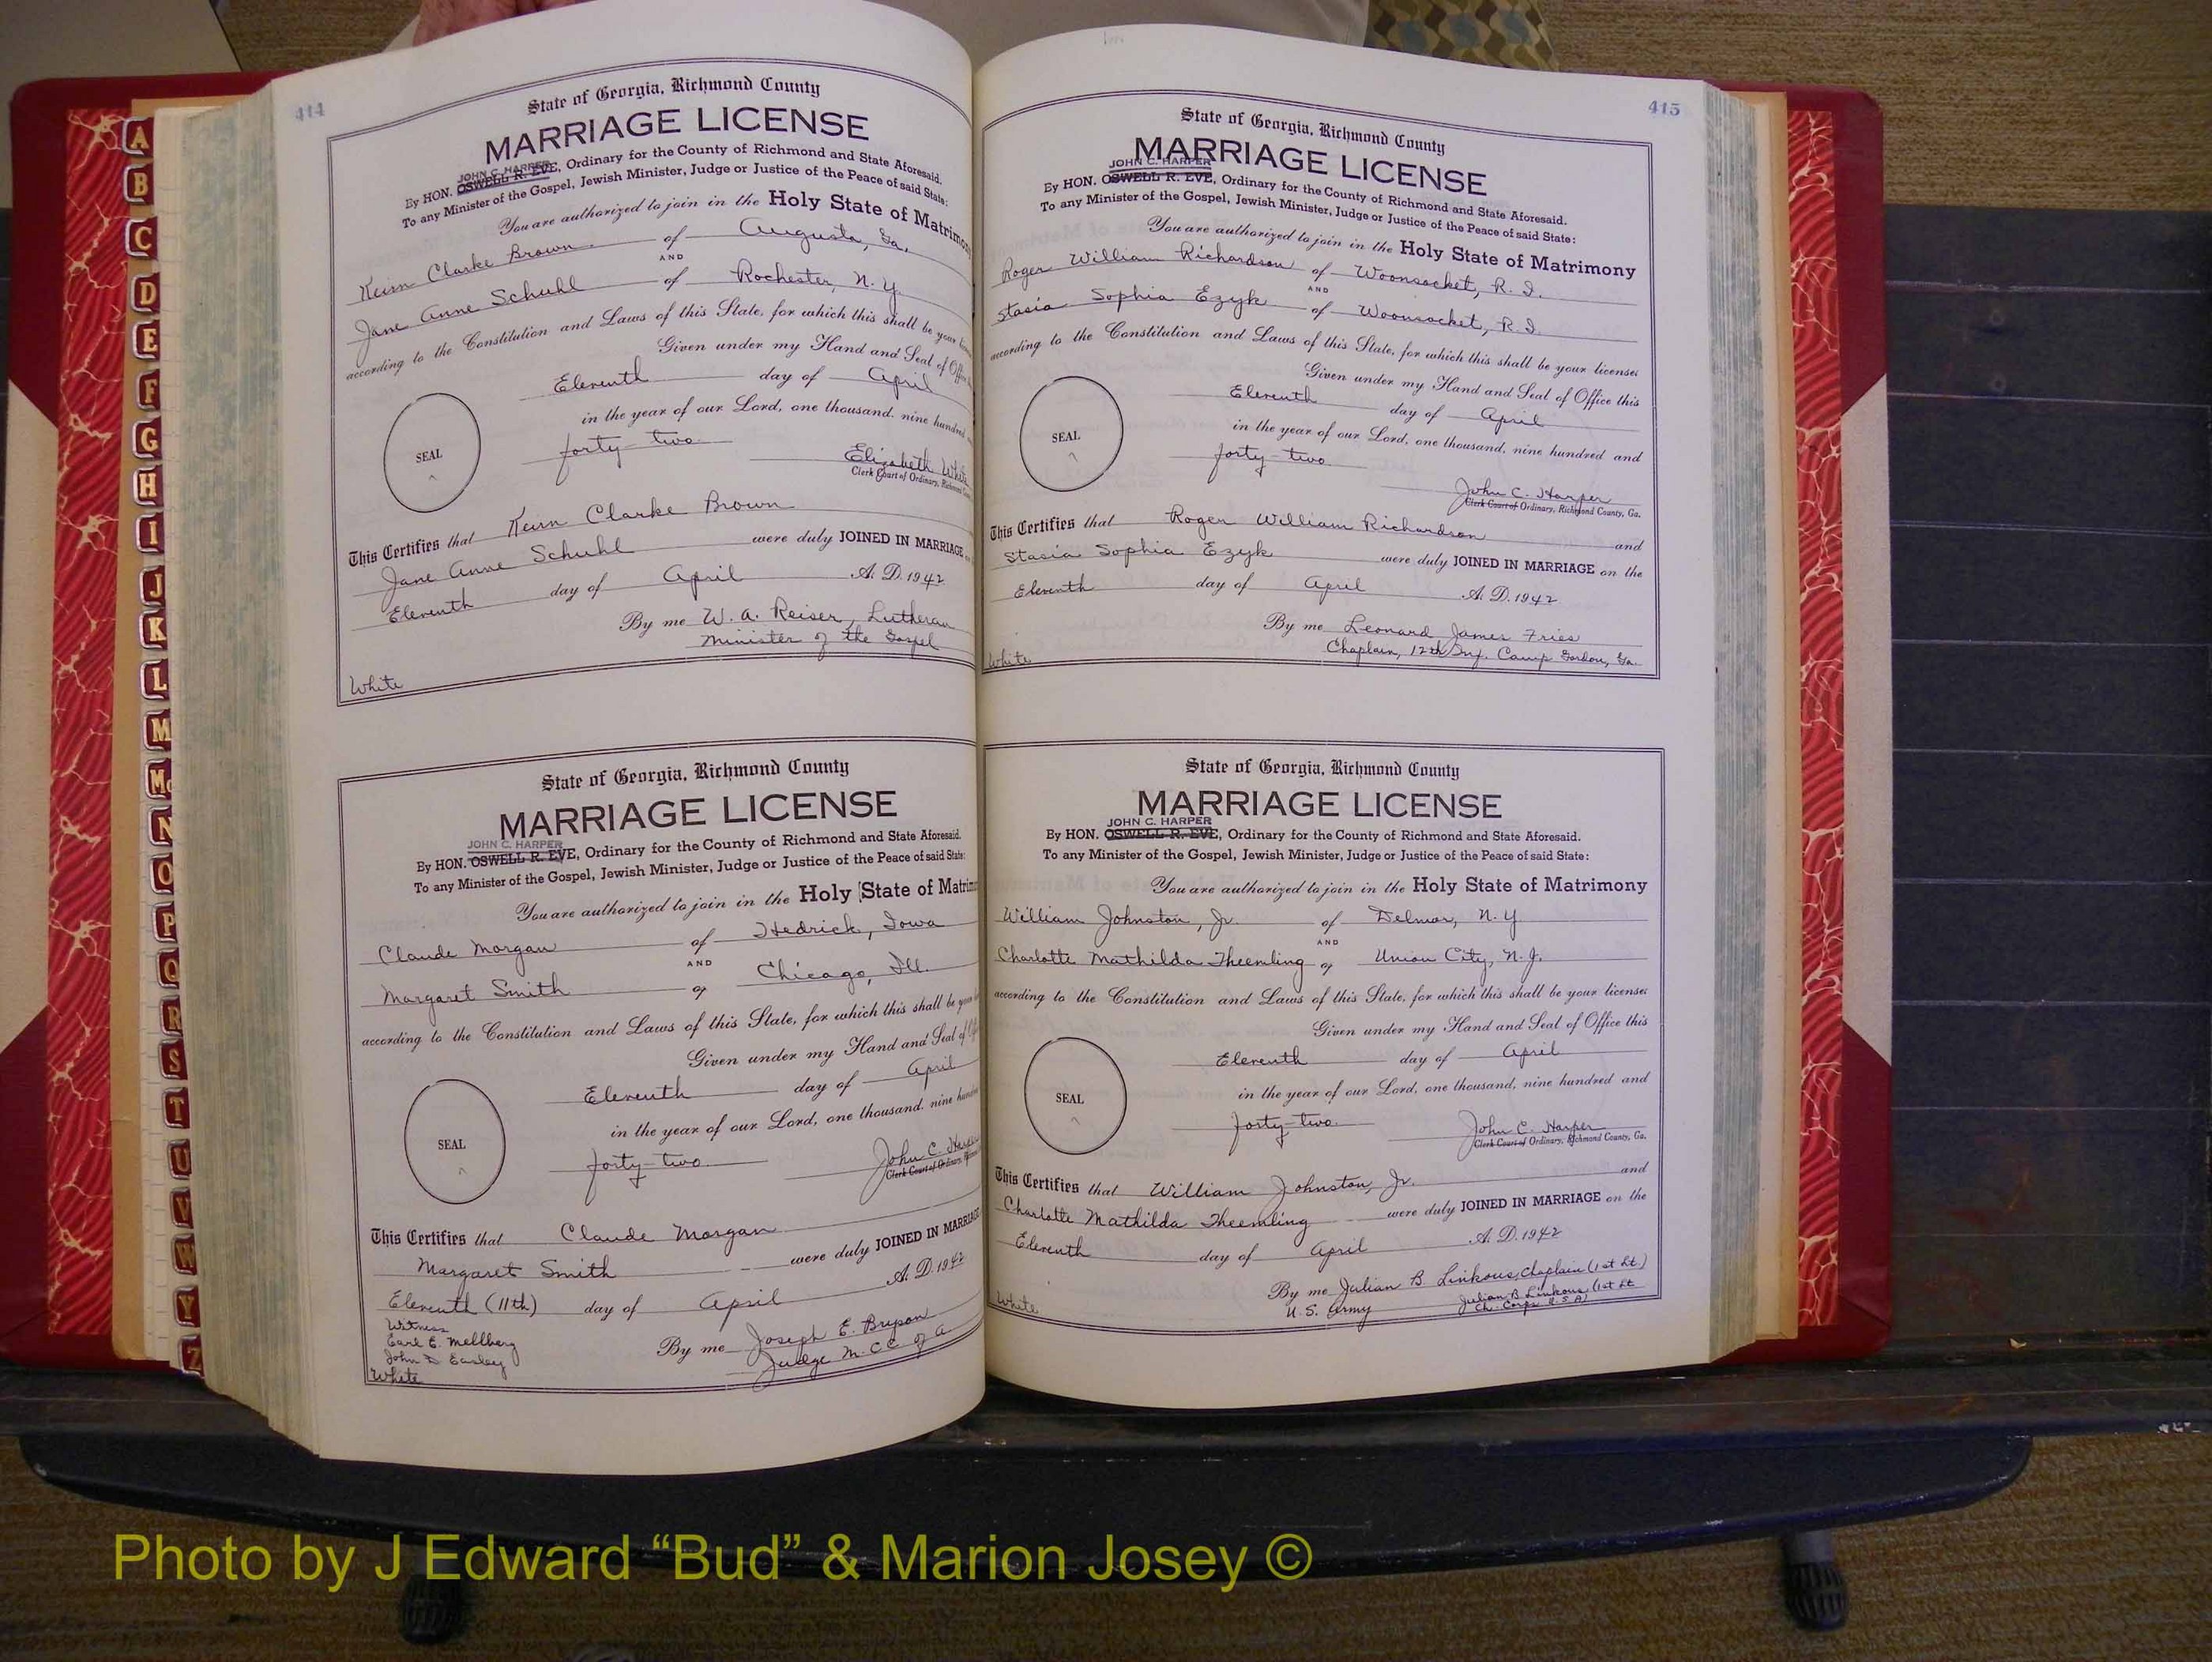 414
State of Georgia, Richmond County
MARRIAGE LICENSE
JOHN C. HARPER
By HON. OSWELL R. EVE, Ordinary for the County of Richmond and State Aforesaid.
To any Minister of the Gospel, Jewish Minister, Judge or Justice of the Peace of said State:
You are authorized to join in the Holy State of Matrimony
Clarke Brown of Augusta, Ga.
AND
Jane Anne Schuhl of Rochester, N.Y.
according to the Constitution and Laws of this State, for which this shall be your
Given under my Hand and Seal of Office
Eleventh day of April
in the year of our Lord, one thousand, nine hundred
forty-two
SEAL
Elizabeth White
Clerk Court of Ordinary, Richmond
This Certifies that Clarke Brown
Jane Anne Schuhl were duly JOINED IN MARRIAGE
Eleventh day of April A. D. 1942
By me W. A. Reiser, Lutheran
Minister of the Gospel
White
State of Georgia, Richmond County
MARRIAGE LICENSE
JOHN C. HARPER
By HON. OSWELL R. EVE, Ordinary for the County of Richmond and State Aforesaid.
To any Minister of the Gospel, Jewish Minister, Judge or Justice of the Peace of said State:
You are authorized to join in the Holy State of Matrim
Claude Morgan of Hedrick, Iowa
AND
Margaret Smith of Chicago, Ill.
according to the Constitution and Laws of this State, for which this shall be your
Given under my Hand and Seal of
Eleventh day of April
in the year of our Lord, one thousand, nine hundred
forty-two
SEAL
John C. Harper
Clerk Court of Ordinary,
This Certifies that Claude Morgan
Margaret Smith were duly JOINED IN MARRIAGE
Eleventh (11th) day of April A. D. 1942
Witness
Earl E. Mellberg
John D Easley
By me Joseph E. Bryson
Judge M. C C of A
White
415
State of Georgia, Richmond County
MARRIAGE LICENSE
JOHN C. HARPER
By HON. OSWELL R. EVE, Ordinary for the County of Richmond and State Aforesaid.
To any Minister of the Gospel, Jewish Minister, Judge or Justice of the Peace of said State:
You are authorized to join in the Holy State of Matrimony
Roger William Richardson of Woonsocket, R. I.
AND
Stasia Sophia Ezyk of Woonsocket, R. I.
according to the Constitution and Laws of this State, for which this shall be your license:
Given under my Hand and Seal of Office this
Eleventh day of April
in the year of our Lord, one thousand, nine hundred and
forty-two
SEAL
John C. Harper
Clerk Court of Ordinary, Richmond County, Ga.
This Certifies that Roger William Richardson and
Stasia Sophia Ezyk were duly JOINED IN MARRIAGE on the
Eleventh day of April A. D. 1942
By me Leonard James Fries
Chaplain, 12th Inf. Camp Gordon, Ga.
White
State of Georgia, Richmond County
MARRIAGE LICENSE
JOHN C. HARPER
By HON. OSWELL R. EVE, Ordinary for the County of Richmond and State Aforesaid.
To any Minister of the Gospel, Jewish Minister, Judge or Justice of the Peace of said State:
You are authorized to join in the Holy State of Matrimony
William Johnston, Jr. of Delmar, N. Y
AND
Charlotte Mathilda Theemling of Union City, N. J.
according to the Constitution and Laws of this State, for which this shall be your license:
Given under my Hand and Seal of Office this
Eleventh day of April
in the year of our Lord, one thousand, nine hundred and
forty-two
SEAL
John C. Harper
Clerk Court of Ordinary, Richmond County, Ga.
This Certifies that William Johnston, Jr. and
Charlotte Mathilda Theemling were duly JOINED IN MARRIAGE on the
Eleventh day of April A. D. 1942
By me Julian B. Linkous, Chaplain (1st Lt.)
U. S. Army
Julian B Linkous (1st Lt
Ch. Corps U.S.A)
White
A
B
C
D
E
F
G
H
I
J
K
L
M
Mc
N
O
P
Q
R
S
T
U
V
W
Y
Z
Photo by J Edward “Bud” & Marion Josey ©